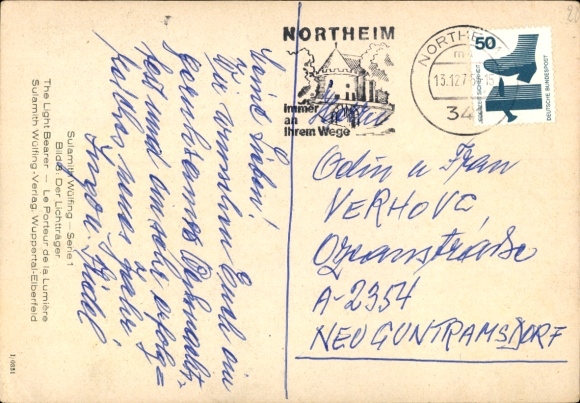 NORTHEIM
immer
an
Ihrem Wege
NORTHEIM
13.12.7
34
50
DEUTSCHE BUNDESPOST
Meine Lieben!
Wir wünschen Euch ein
geruhsames Weihnachts-
fest und ein sehr erfolg-
reiches neues Jahr!
Odin u. Frau
VERHOVC
A-2354
NEU GUNTRAMSDORF
Sulamith Wülfing - Serie 1
Bild 5: Der Lichtträger
The Light Bearer — Le Porteur de la Lumière
Sulamith Wülfing-Verlag, Wuppertal-Elberfeld